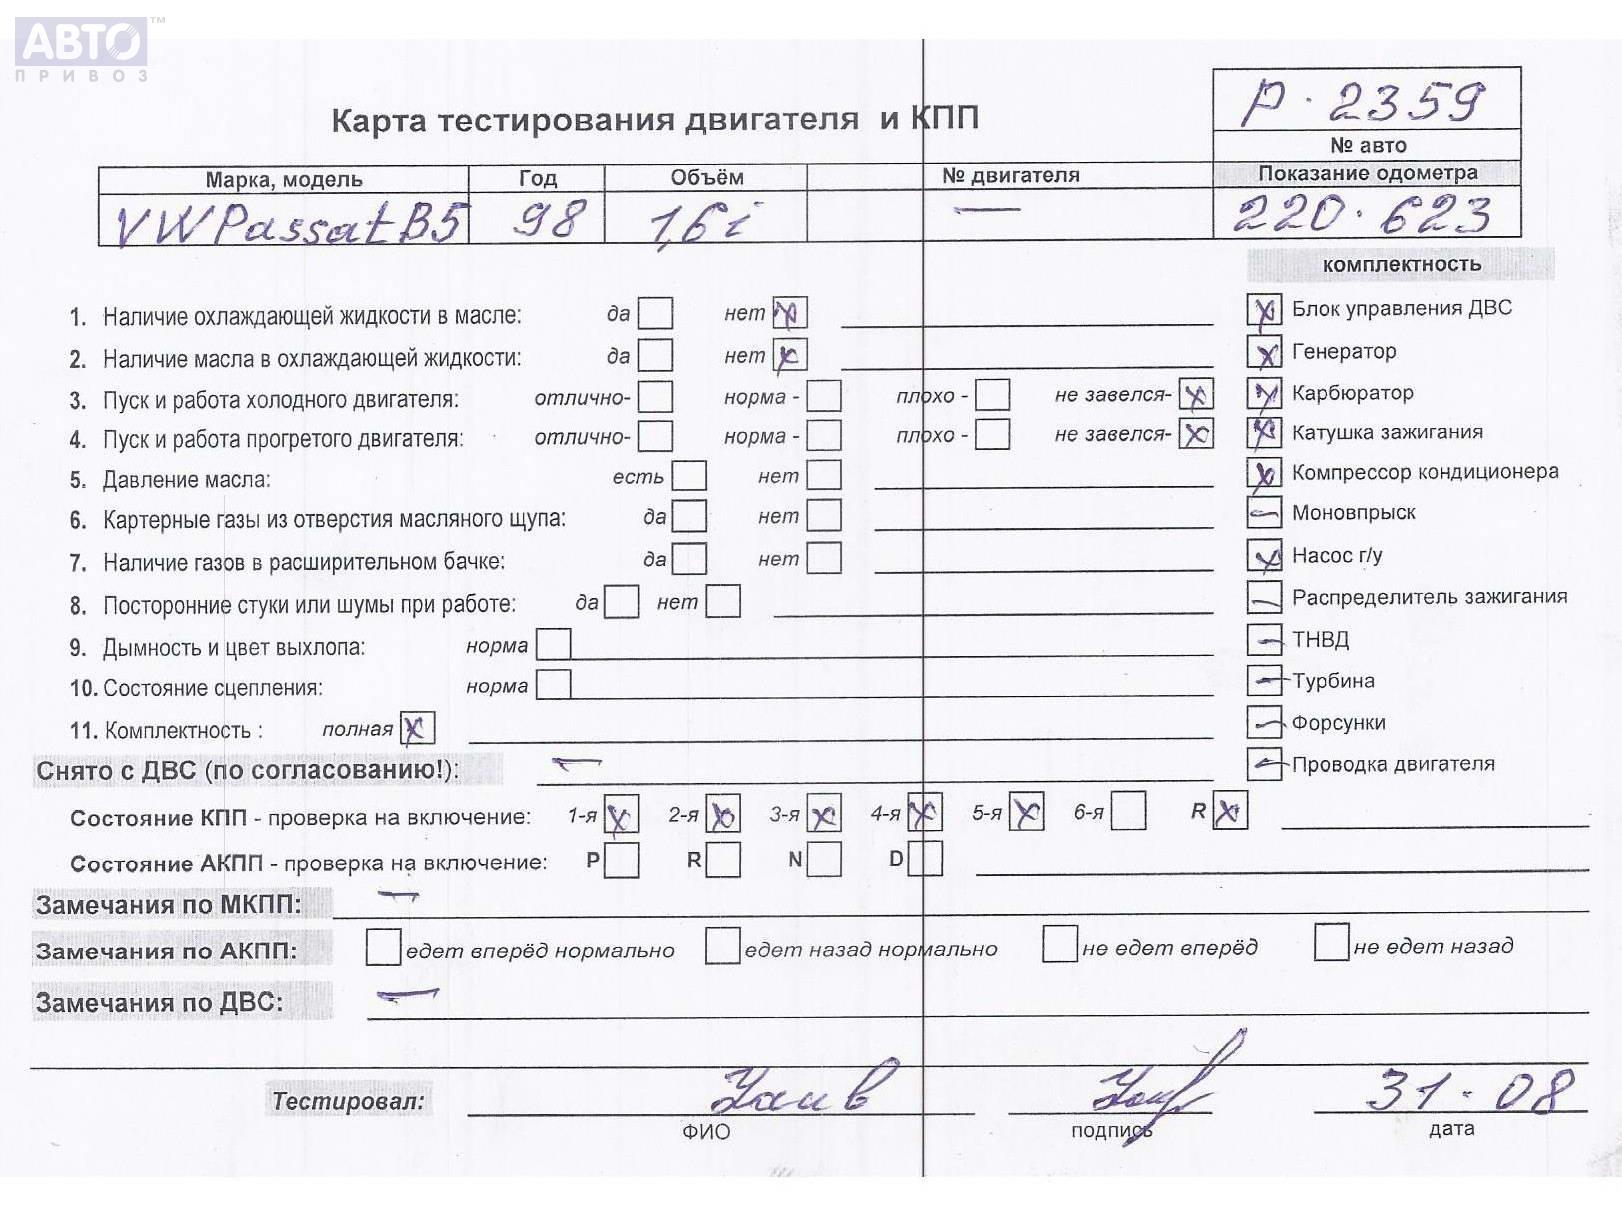 АВТО™
ПРИВОЗ
Р·2359
Карта тестирования двигателя и КПП
№ авто
Марка, модель Год Объём № двигателя Показание одометра
VW Passat B5 98 1,6 i — 220·623
комплектность
1. Наличие охлаждающей жидкости в масле: да нет x
x Блок управления ДВС
2. Наличие масла в охлаждающей жидкости: да нет x
x Генератор
3. Пуск и работа холодного двигателя: отлично- норма - плохо - не завелся- x
x Карбюратор
4. Пуск и работа прогретого двигателя: отлично- норма - плохо - не завелся- x
x Катушка зажигания
5. Давление масла: есть нет
x Компрессор кондиционера
6. Картерные газы из отверстия масляного щупа: да нет
— Моновпрыск
7. Наличие газов в расширительном бачке: да нет
x Насос г/у
8. Посторонние стуки или шумы при работе: да нет
— Распределитель зажигания
9. Дымность и цвет выхлопа: норма
— ТНВД
10. Состояние сцепления: норма
— Турбина
11. Комплектность : полная x
— Форсунки
Снято с ДВС (по согласованию!): —
— Проводка двигателя
Состояние КПП - проверка на включение: 1-я x 2-я x 3-я x 4-я x 5-я x 6-я R x
Состояние АКПП - проверка на включение: P R N D
Замечания по МКПП: —
Замечания по АКПП: едет вперёд нормально едет назад нормально не едет вперёд не едет назад
Замечания по ДВС: —
Тестировал: 31-08
ФИО подпись дата